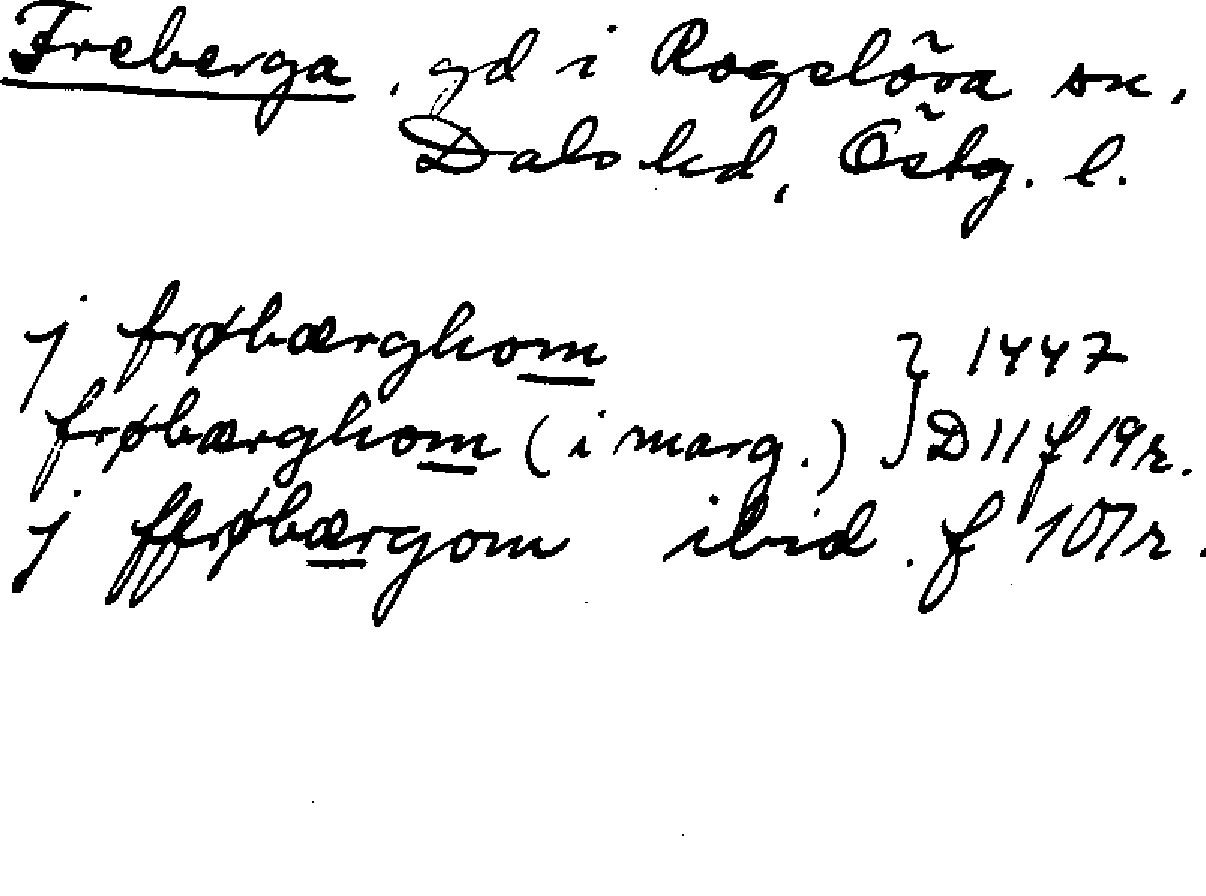 Freberga, gd i Rogslösa sn,
Dals hd, Östg. l.
j frøbærghom } 1447
frøbærghom (i marg.) } D 11 f 19r.
j ffrøbærgom ibid. f 107r.